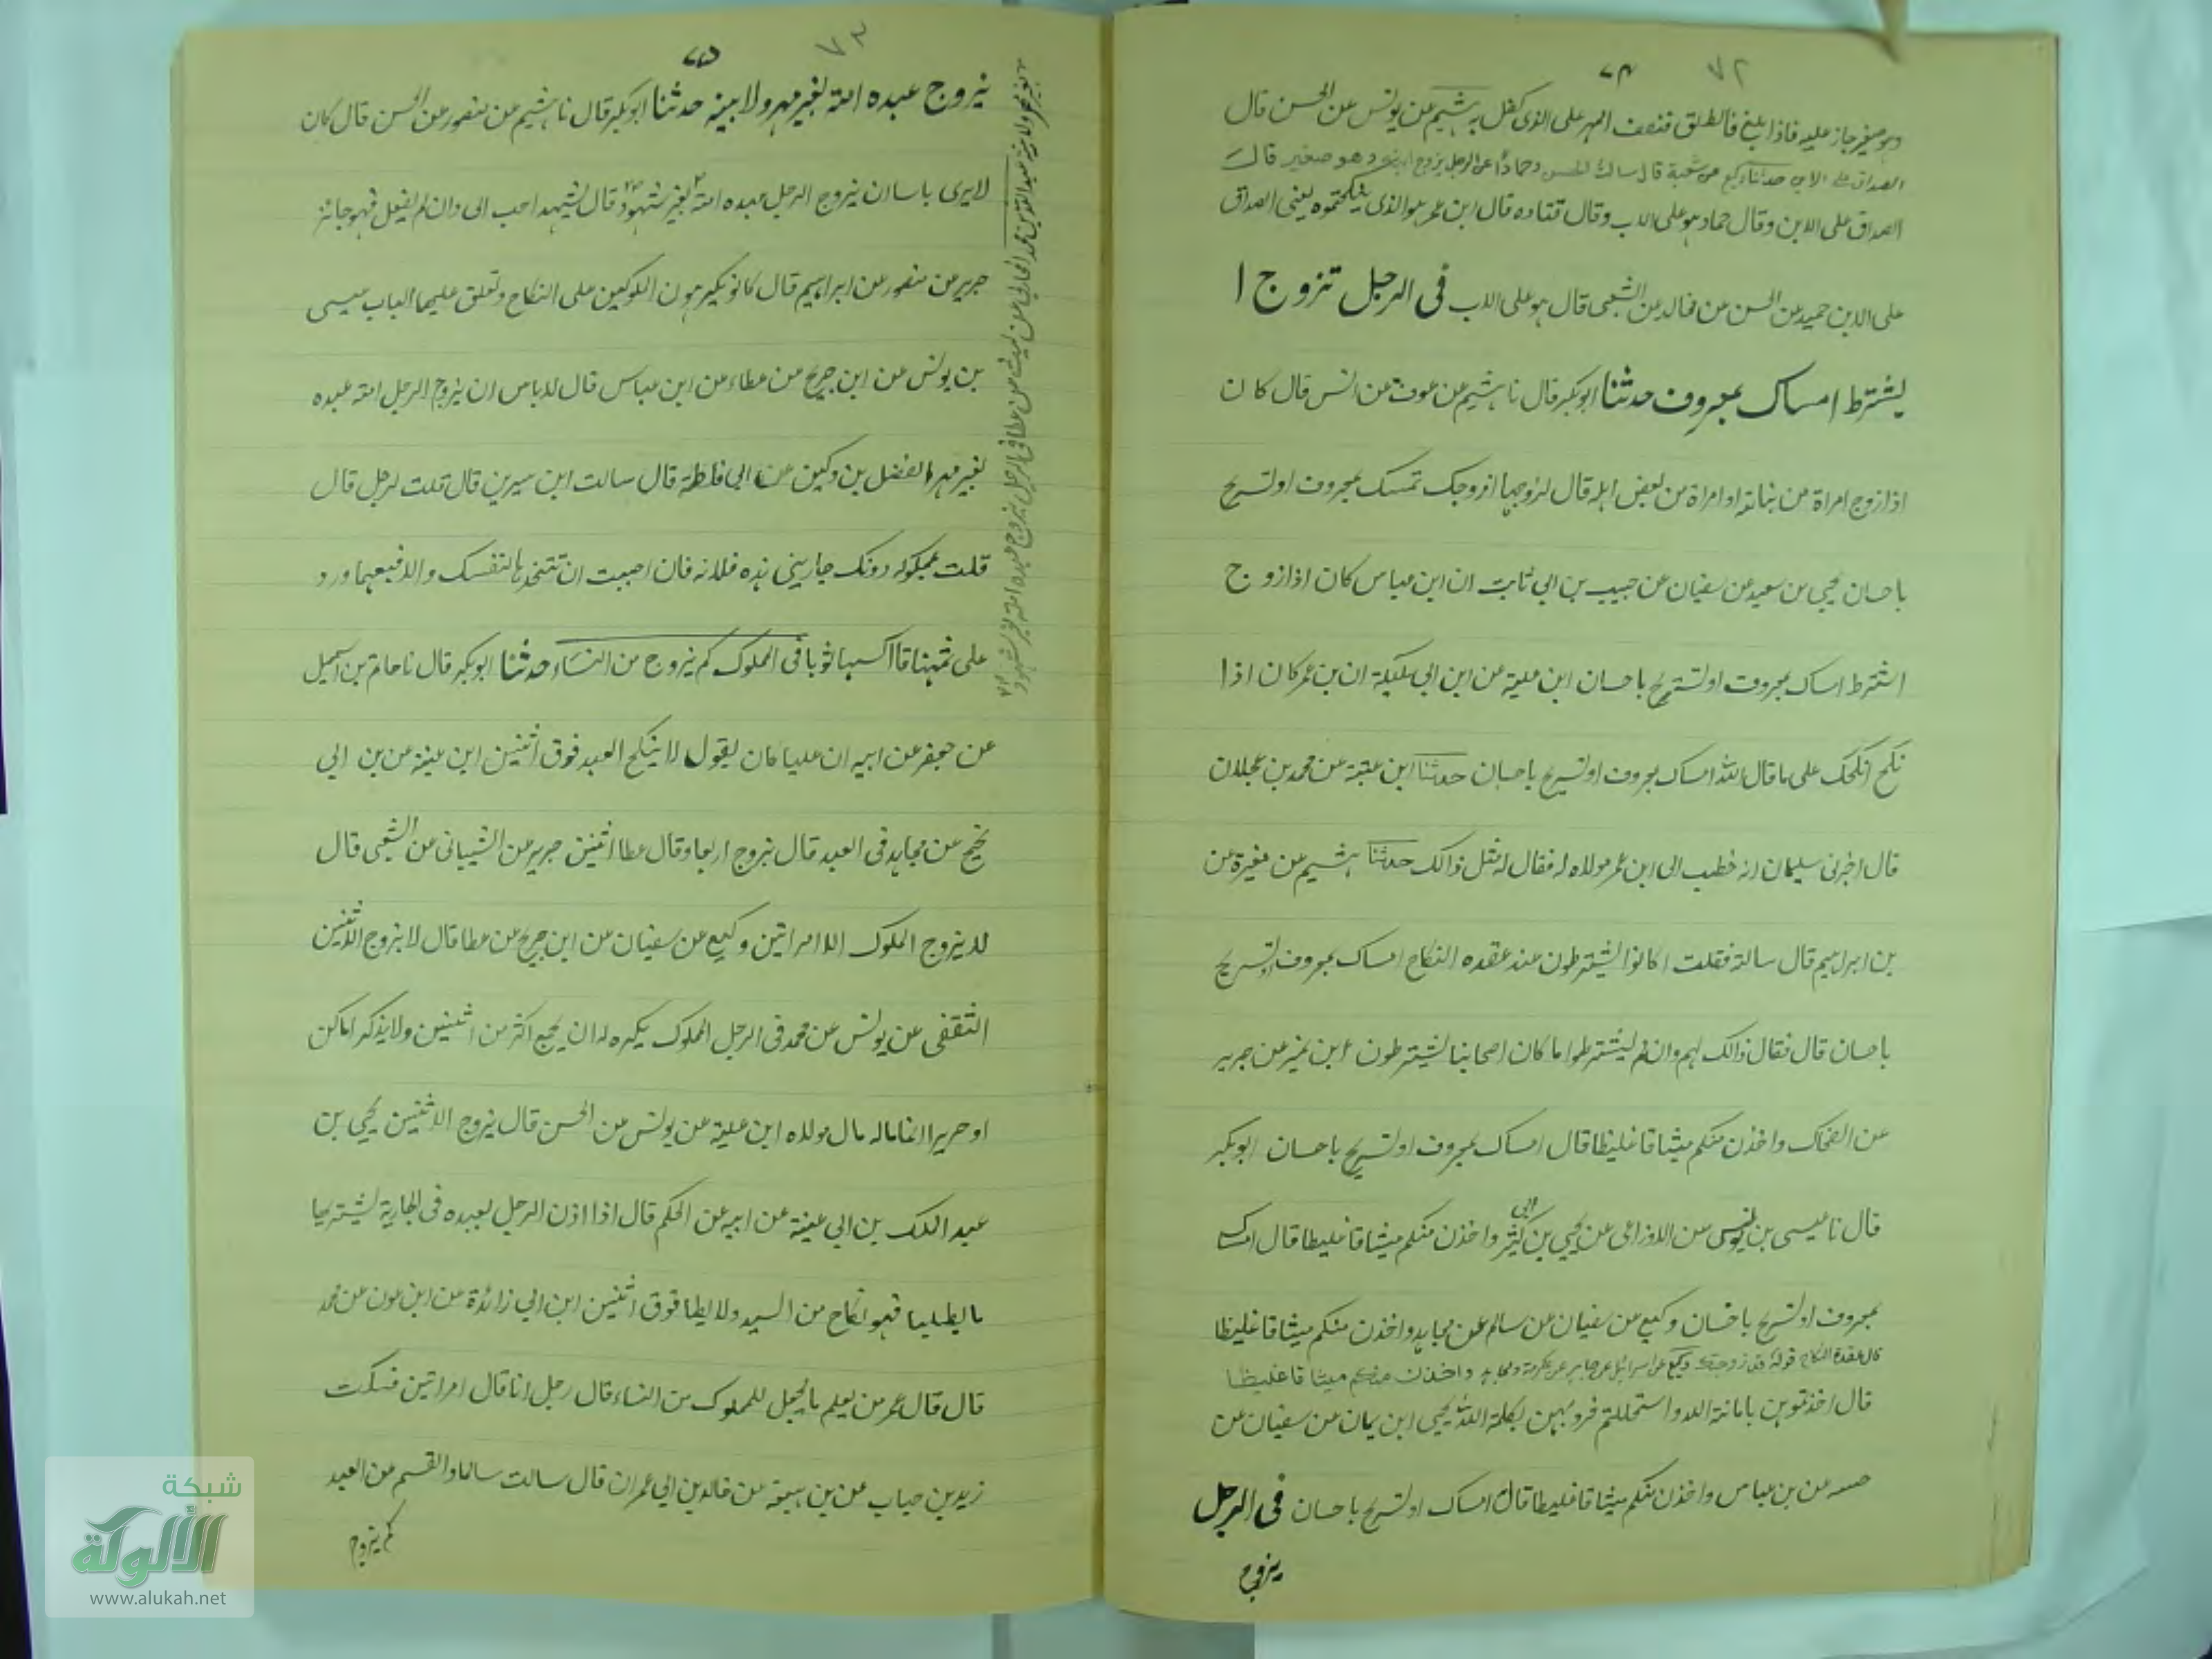 ٧٢
٧٤
وهو صغير جاز عليه فاذا بلغ فالطلق فنصف المهر على الذى كفل به هشيم عن يونس عن الحسن قال
الصداق على الاب حدثنا وكيع عن شعبة قال سالت الحسن وحمادا عن الرجل يزوج ابنه وهو صغير قال
الصداق على الابن وقال حماد هو على الاب وقال قتاده قال ابن عمر هو الذى انكحتموه يعنى الصداق
على الابن حميد عن الحسن عن خالد عن الشعبى قال هو على الاب فى الرجل تزوج ا
يشترط امساك بمعروف حدثنا ابو بكر قال نا هشيم عن عوف عن انس قال كان
اذا زوج امراة من بناته او امراة من بعض اهله قال لزوجها ازوجك تمسك بمعروف او تسريح
باحسان يحيى بن سعيد عن سفيان عن حبيب بن ابى ثابت ان ابن عباس كان اذا زوج
اشترط امساك بمعروف او تسريح باحسان ابن علية عن ابن ابى مليكة ان بن عمر كان اذا
نكح انكحك على ما قال الله امساك بمعروف او تسريح باحسان حدثنا ابن عيينة عن محمد بن عجلان
قال اخبرنى سليمان انه خطب الى ابن عمر مولاه له فقال له مثل ذالك حدثنا هشيم عن مغيرة عن
بن ابراهيم قال سالته فقلت اكانوا يشترطون عند عقده النكاح امساك بمعروف او تسريح
باحسان قال فقال ذالك لهم وان لم يشترطوا ما كان اصحابنا يشترطون ابن نمير عن جرير
عن الضحاك واخذن منكم ميثاقا غليظا قال امساك بمعروف او تسريح باحسان ابو بكر
قال نا عيسى بن يونس عن الاوزاعى عن يحيى بن ابى كثير واخذن منكم ميثاقا غليظا قال امساك
بمعروف او تسريح باحسان وكيع عن سفيان عن سالم عن مجاهد واخذن منكم ميثاقا غليظا
قال عقدة النكاح قوله قد زوجتك وكيع عن اسرائيل عن جابر عن عكرمة ومجاهد واخذن منكم ميثاقا غليظا
قال اخذتموهن بامانة الله واستحللتم فروجهن بكلمة الله يحيى ابن يمان عن سفيان عن
عن بن عباس واخذن منكم ميثاقا غليظا قال امساك او تسريح باحسان فى الرجل
يزوج
٧٥
يزوج عبده امته بغير مهر ولا بينه حدثنا ابو بكر قال نا هشيم عن منصور عن الحسن قال كان
لا يرى باسا ان يزوج الرجل عبده امته بغير شهود قال يشهد احب الى وان لم يفعل فهو جائز
جرير عن منصور عن ابراهيم قال كانوا يكرهون المملوكين على النكاح وتغلق عليهما الباب عيسى
بن يونس عن ابن جريج عن عطاء عن ابن عباس قال لا باس ان يزوج الرجل امته عبده
بغير مهر الفضل بن دكين عن ابى خلطة قال سالت ابن سيرين قال قلت لرجل قال
قلت لمملوكه دونك جاريتى هذه فلانه فان احببت ان تتخذها لنفسك والا فبعها ورد
على ثمنها قا اكسبها ثوبا فى المملوك كم يزوج من النساء حدثنا ابو بكر قال نا حاتم بن اسمعيل
عن جعفر عن ابيه ان عليا كان يقول لا ينكح العبد فوق اثنين ابن عيينة عن بن ابى
نجيح عن مجاهد فى العبد قال يتزوج اربعا وقال عطا اثنين جرير عن الشيبانى عن الشعبى قال
لا يتزوج المملوك الا امراتين وكيع عن سفيان عن ابن جريج عن عطا قال لا يتزوج الا اثنين
الثقفى عن يونس عن محمد فى الرجل المملوك يكره له ان يجمع اكثر من اثنين ولا يذكر اماكن
او حريرا انما ماله مال مولاه ابن علية عن يونس عن الحسن قال يزوج الا اثنين يحيى بن
عبد الملك بن ابى غنية عن ابيه عن الحكم قال اذا اذن الرجل لعبده فى الجارية يشتريها
ما يطلبها فهو نكاح من السيد ولا يطا فوق اثنين ابن ابى زائدة عن ابن عون عن محمد
قال قال عمر من يعلم ما يحل للمملوك من النساء قال رجل انا قال امراتين فسكت
زيد بن حباب عن بن لهيعة عن خالد بن ابى عمران قال سالت سالما والقسم عن العبد
كم يتزوج
شبكة
الألوكة
www.alukah.net